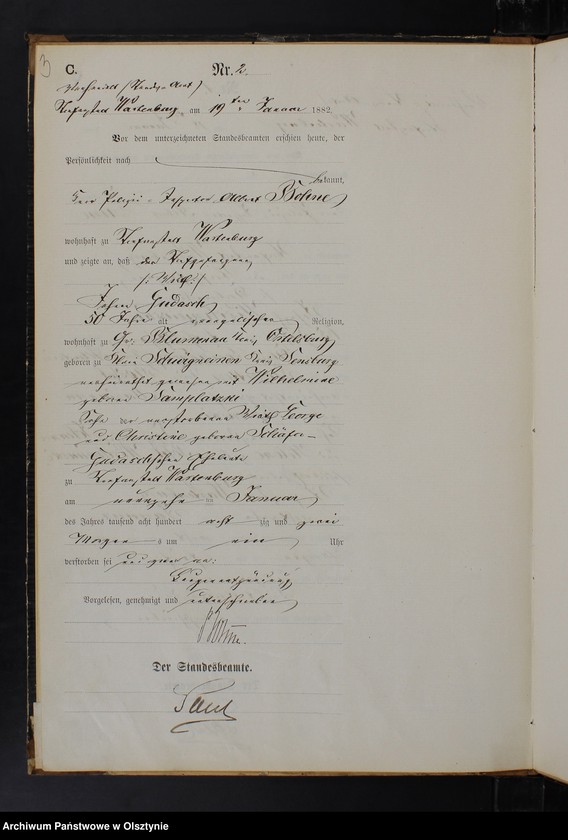 3
C.
Nr. 2.
Strafanstalt Wartenburg am 19ten Januar 1882.
Vor dem unterzeichneten Standesbeamten erschien heute, der
Persönlichkeit nach
bekannt,
Herr Polizei-Inspector Albert Böhne
wohnhaft zu Strafanstalt Wartenburg
und zeigte an, daß der Strafgefangene
Gudasch
50 Jahre alt evangelischer Religion,
wohnhaft zu Gr: Blumenau Kreis Ortelsburg
geboren zu Klein Schwignainen Kreis Sensburg
verheirathet gewesen mit Wilhelmine
geborne Samplatzki
Sohn der verstorbenen George
und Christine geborene Schäfer-
Gudaschschen Eheleute
zu Strafanstalt Wartenburg
am neunzehn ten Januar
des Jahres tausend acht hundert acht zig und zwei
Morgens um ein Uhr
verstorben sei und zwar an:
Lungenentzündung
Vorgelesen, genehmigt und unterschrieben
Böhne.
Der Standesbeamte.
Archiwum Państwowe w Olsztynie